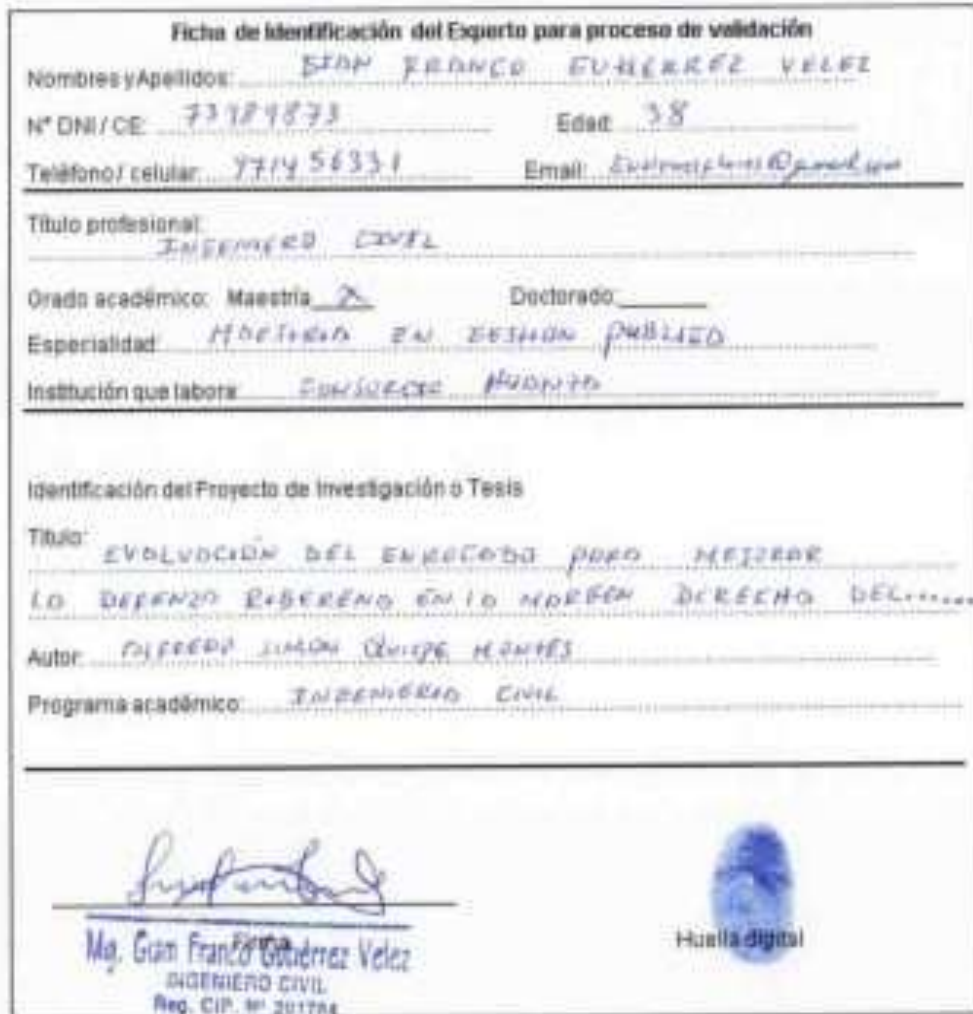 Ficha de Identificación del Experto para proceso de validación
Nombres y Apellidos: GIAN FRANCO GUTIERREZ VELEZ
N° DNI / CE: 73989873 Edad: 38
Teléfono / celular: 971456331 Email:
Título profesional:
INGENIERO CIVIL
Grado académico: Maestría X Doctorado:
Especialidad: MAESTRIA EN GESTION PUBLICA
Institución que labora: CONSORCIO HUANTA
Identificación del Proyecto de Investigación o Tesis
Título: EVALUACIÓN DEL ENROCADO PARA MEJORAR
LA DEFENZA RIBEREÑA EN LA MARGEN DERECHA DEL......
Autor: SIMON QUISPE MONTES
Programa académico: INGENIERIA CIVIL
Firma
Mg. Giam Franco Gutiérrez Velez
INGENIERO CIVIL
Reg. CIP. N° 201784
Huella digital